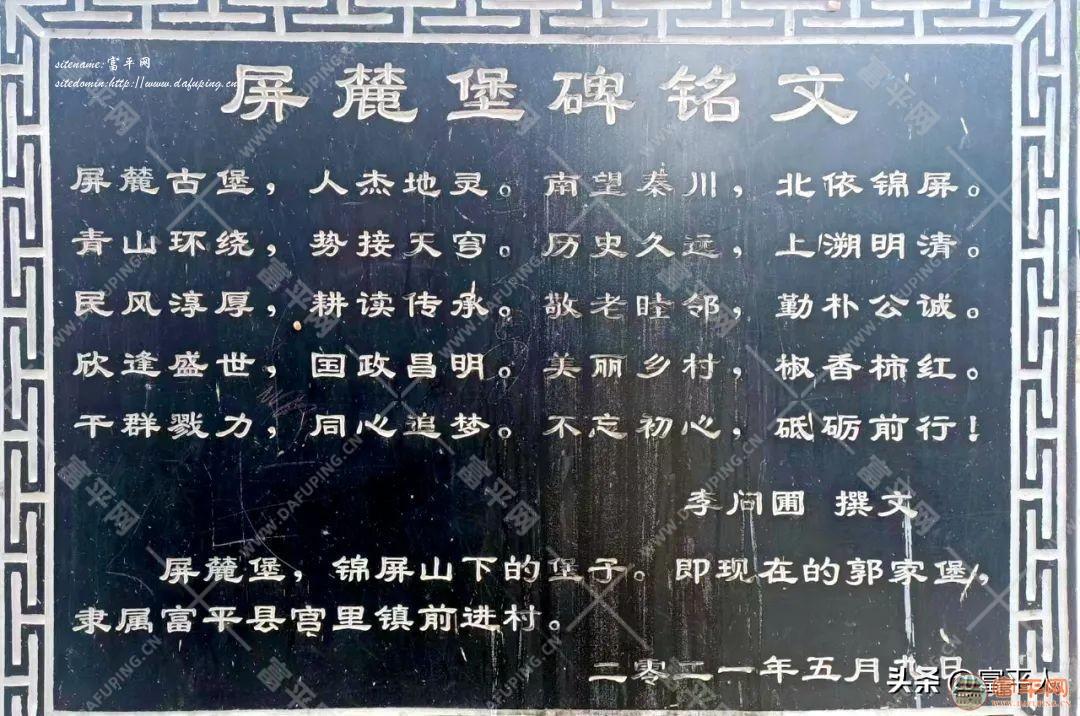 sitename:富平网
sitedomain:http://www.dafuping.cn
屏麓堡碑铭文
屏麓古堡，人杰地灵。南望秦川，北依锦屏。
青山环绕，势接天穹。历史久远，上溯明清。
民风淳厚，耕读传承。敬老睦邻，勤朴公诚。
欣逢盛世，国政昌明。美丽乡村，椒香柿红。
干群戮力，同心追梦。不忘初心，砥砺前行！
李问圃 撰文
屏麓堡，锦屏山下的堡子。即现在的郭家堡，
隶属富平县宫里镇前进村。
二零二一年五月九日
头条 @富平人
富平网
WWW.DAFUPING.CN